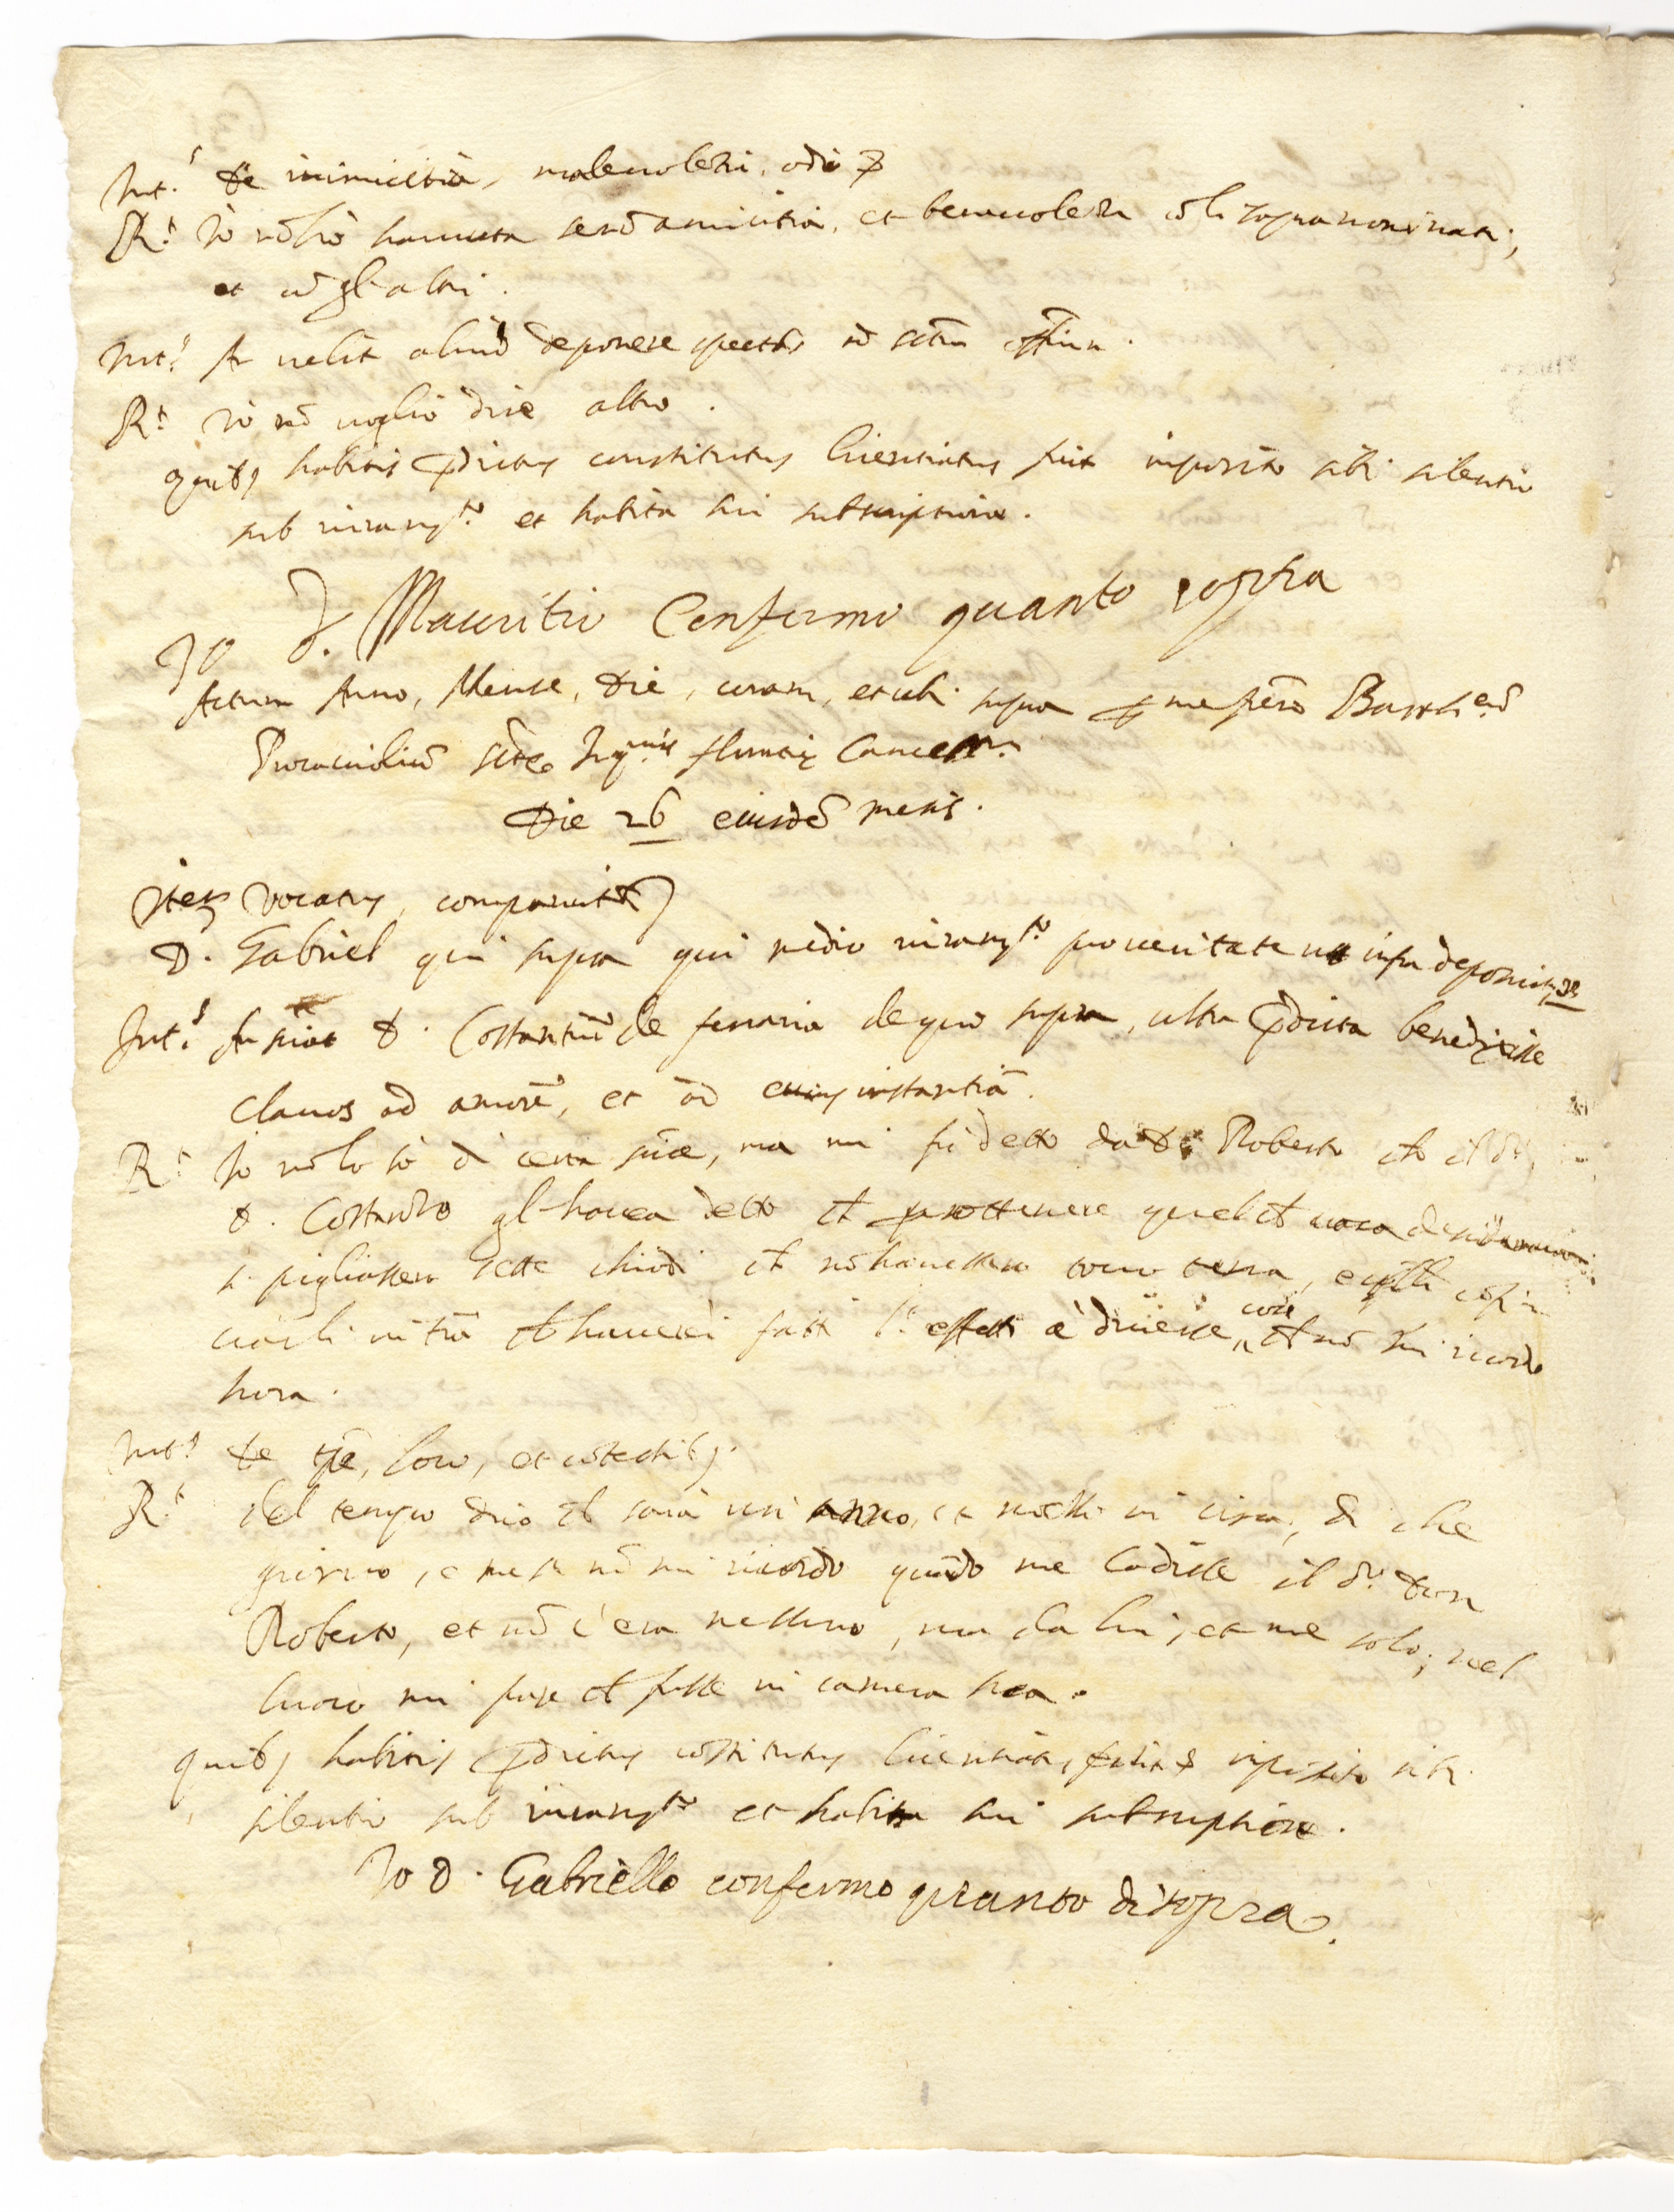 Int.s de inimicitia, malevolentia, odio &
R.t Io nõ hò havuta senõ amicitia, et benevolenza cõ li sopranominati;
et cõ gl'altri.
Int.s An velit aliud deponere spectãs ad sctm offitiũ.
R.t Io nõ voglio dire altro.
quibus habitis pdictus constitutus licentiatus fuit imposito sibi silentio
sub iuramto et habita sui subscriptione.
Io D. Mauritio Confermo quanto sopra
Actum Anno, Mense, Die, coram, et ubi supra p me frẽm Barth.eũ
Sctæ Inq.nis Cancell.m
Die 26 eiusdẽ mensis.
Itẽ vocatus, comparuit
D. Gabriel qui supra qui medio iuramto pro veritate ut infra deposuit
Int.s An sciat D. Costantinũ de ferraria de quo supra, ultra pdicta benedixisse
clavos ad amorẽ, et ad cuius instantiã.
R.t Io nõ lo sò di certa sciẽ, ma mi fù detto da D. Roberto ch' il d.o
D. Costantino gl'havea detto ch p ottenere quel ch uno desidera
si pigliassero sette chiodi ch nõ havessero tocco terra, e
in trã ch haverèi fatti l'effetti e diverse, cose ch nõ mi ricordo
hora.
Int.s de tpẽ, loco, et cõtestibus.
R.t del tempo dico ch sarà un anno, et mesi in circa, di che
giorno, e mese nõ mi ricordo quãdo me lo disse il d.o Don
Roberto, et nõ c'era nessuno, ma da lui, et me solo; nel
luoco mi pare ch fosse in camera sua.
quibus habitis pdictus cõstitutus licentiatus fuit imposito sibi
silentio sub iuramto et habita sui subscriptione.
Io D. Gabriello confermo quanto di sopra.